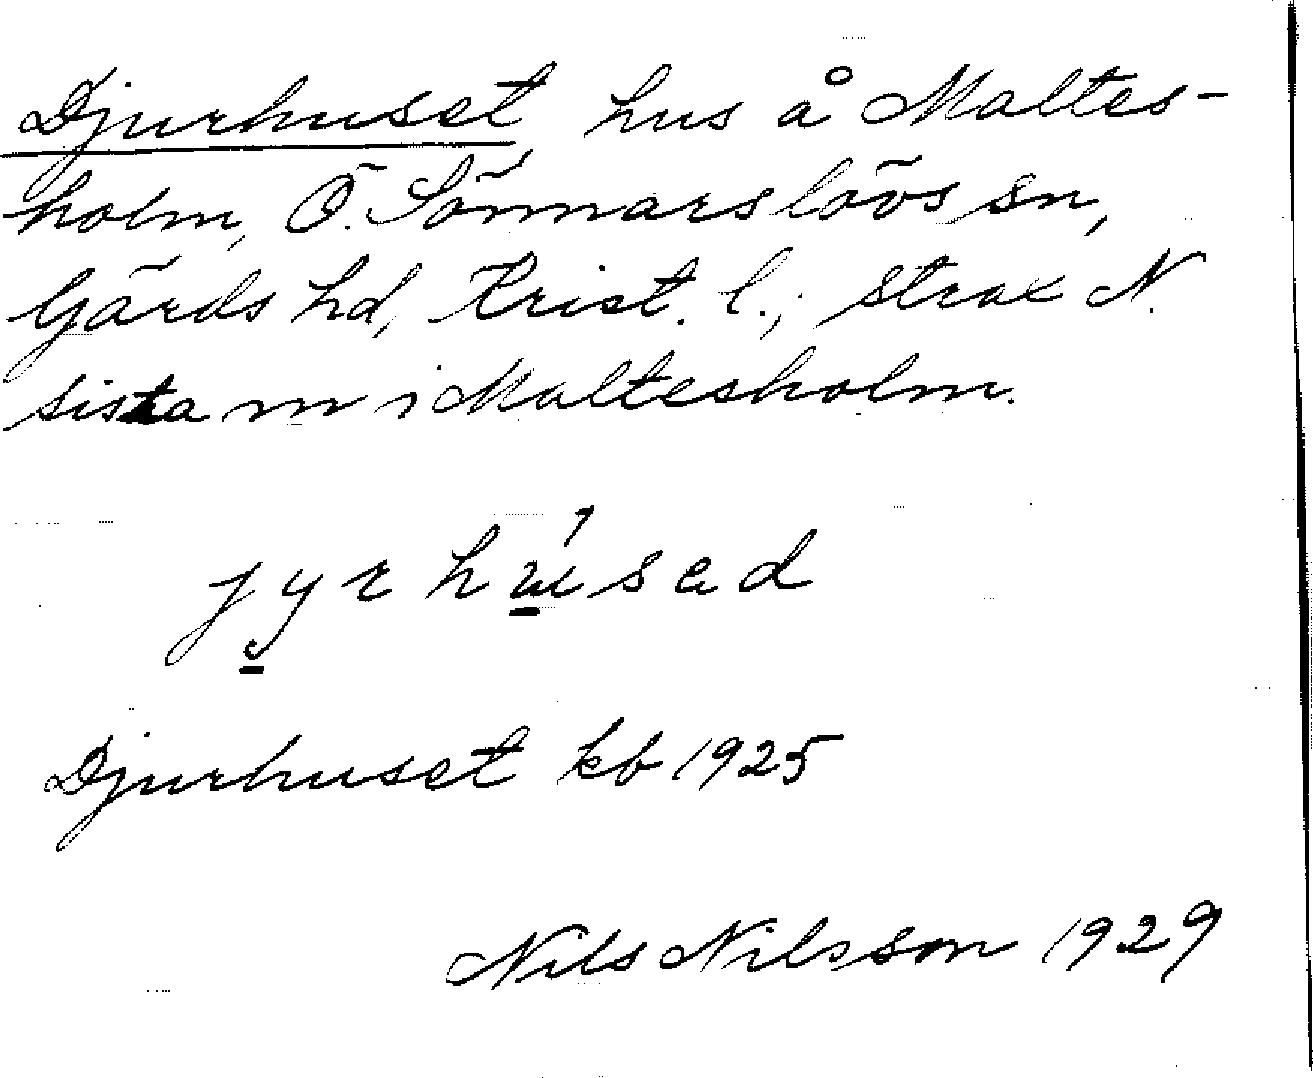 Djurhuset, hus å Maltes-
holm, Ö. Sönnarslövs sn,
Gärds hd, Krist. l.; strax N.
sista m i Maltesholm.
Djurhuset kb 1925
Nils Nilsson 1929